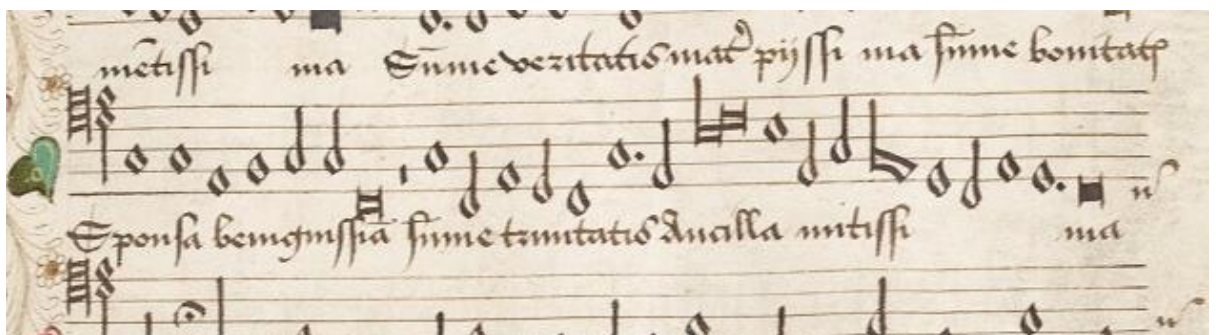 mētissi ma Sūme veritatis mat̉ pijssi ma sūme bonitatꝭ
Sponsa benignissīa sūme trinitatis Ancilla mitissi ma